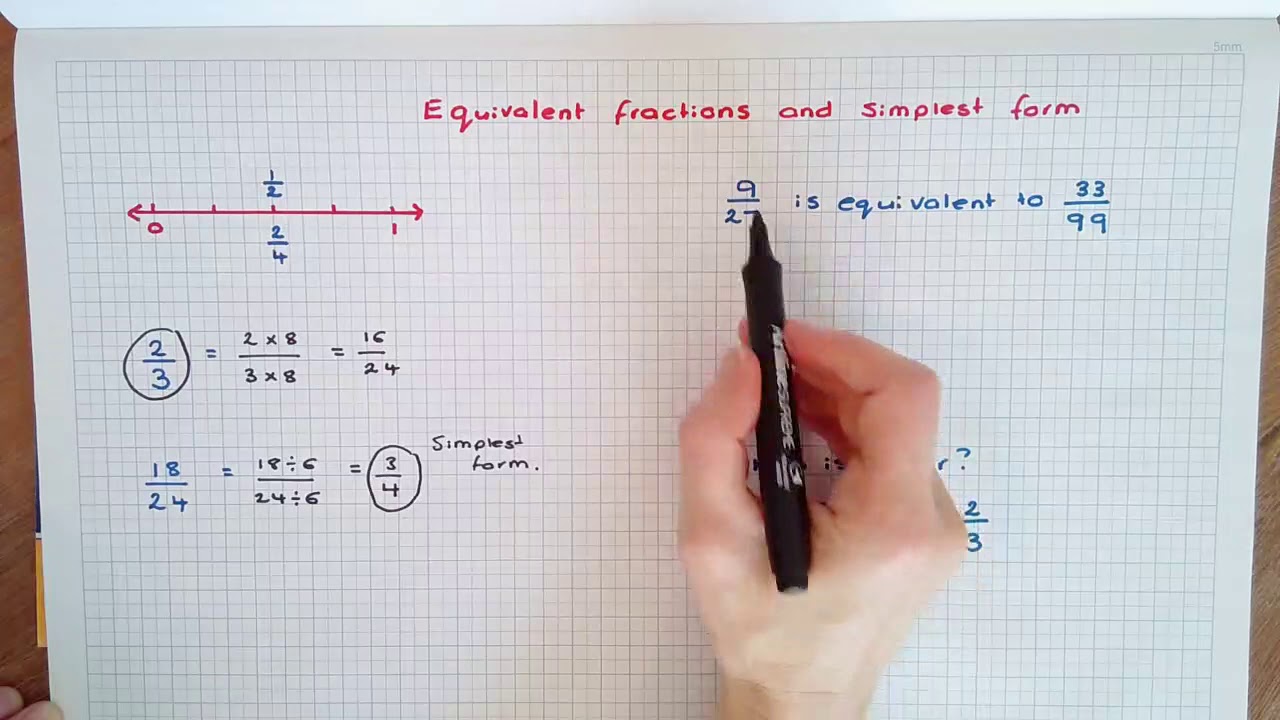 5mm
Equivalent fractions and simplest form
1/2
0 1
2/4
9/27 is equivalent to 33/99
2/3 = 2 x 8/3 x 8 = 16/24
18/24 = 18÷6/24÷6 = 3/4
Simplest
form.
is
?
2/3